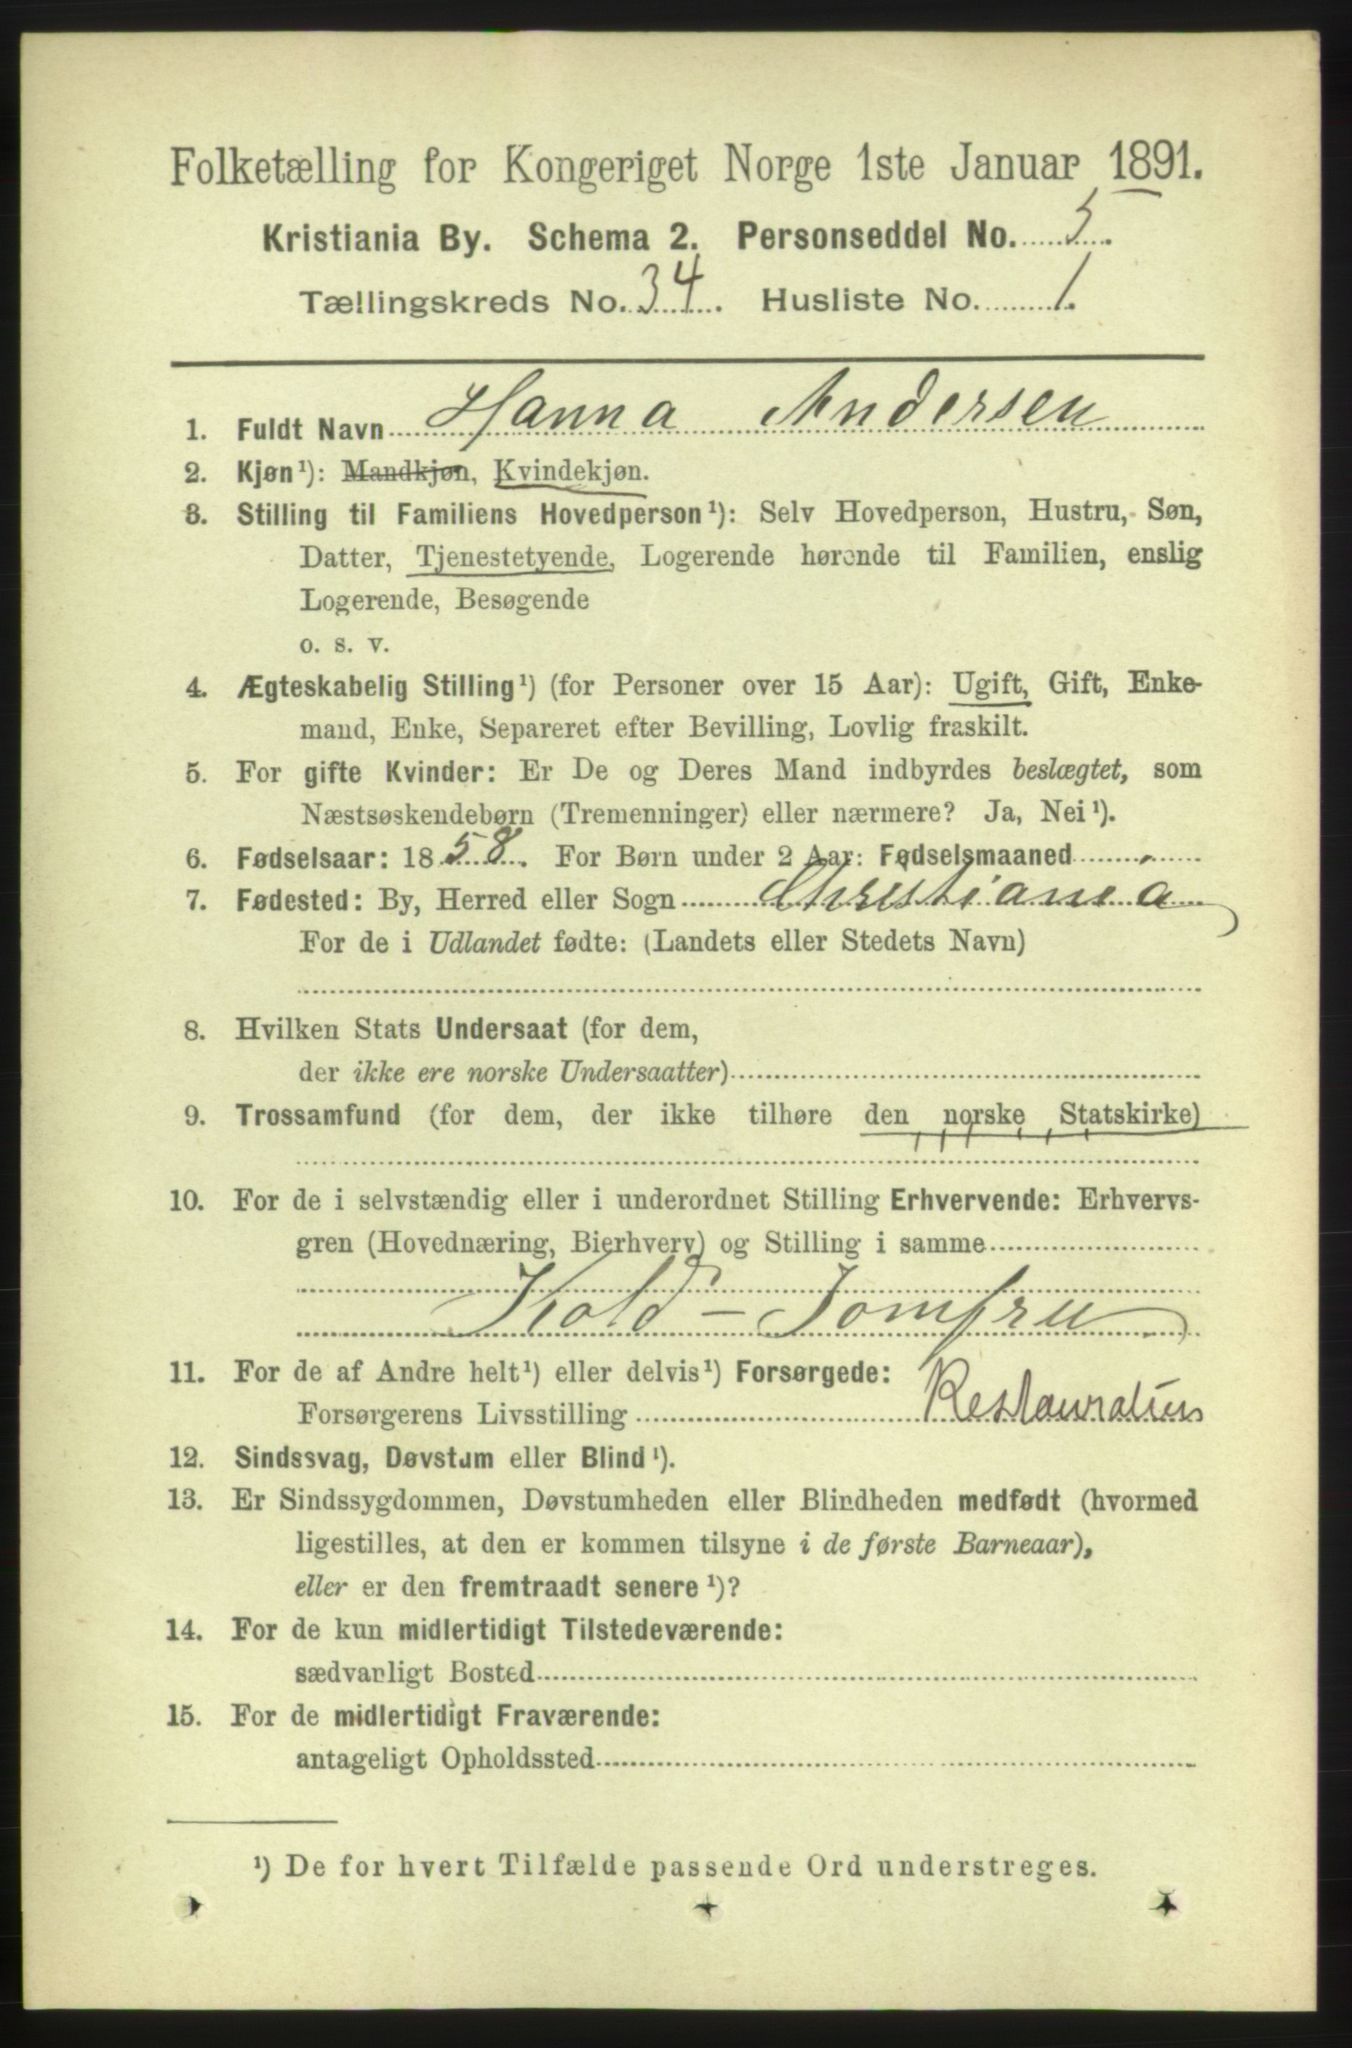 Folketælling for Kongeriget Norge 1ste Januar 1891.
Kristiania By. Schema 2. Personseddel No. 5.
Tællingskreds No. 34. Husliste No. 1.
1. Fuldt Navn Hanna Andersen
2. Kjøn¹): Mandkjøn, Kvindekjøn.
3. Stilling til Familiens Hovedperson¹): Selv Hovedperson, Hustru, Søn,
Datter, Tjenestetyende, Logerende hørende til Familien, enslig
Logerende, Besøgende
o. s. v.
4. Ægteskabelig Stilling¹) (for Personer over 15 Aar): Ugift, Gift, Enke-
mand, Enke, Separeret efter Bevilling, Lovlig fraskilt.
5. For gifte Kvinder: Er De og Deres Mand indbyrdes beslægtet, som
Næstsøskendebørn (Tremenninger) eller nærmere? Ja, Nei¹).
6. Fødselsaar: 1858. For Børn under 2 Aar: Fødselsmaaned
7. Fødested: By, Herred eller Sogn Christiania
For de i Udlandet fødte: (Landets eller Stedets Navn)
8. Hvilken Stats Undersaat (for dem,
der ikke ere norske Undersaatter)
9. Trossamfund (for dem, der ikke tilhøre den norske Statskirke)
10. For de i selvstændig eller i underordnet Stilling Erhvervende: Erhvervs-
gren (Hovednæring, Bierhverv) og Stilling i samme
Kold-Jomfru
11. For de af Andre helt¹) eller delvis¹) Forsørgede:
Forsørgerens Livsstilling Restauration
12. Sindssvag, Døvstum eller Blind¹).
13. Er Sindssygdommen, Døvstumheden eller Blindheden medfødt (hvormed
ligestilles, at den er kommen tilsyne i de første Barneaar),
eller er den fremtraadt senere¹)?
14. For de kun midlertidigt Tilstedeværende:
sædvanligt Bosted
15. For de midlertidigt Fraværende:
antageligt Opholdssted
¹) De for hvert Tilfælde passende Ord understreges.